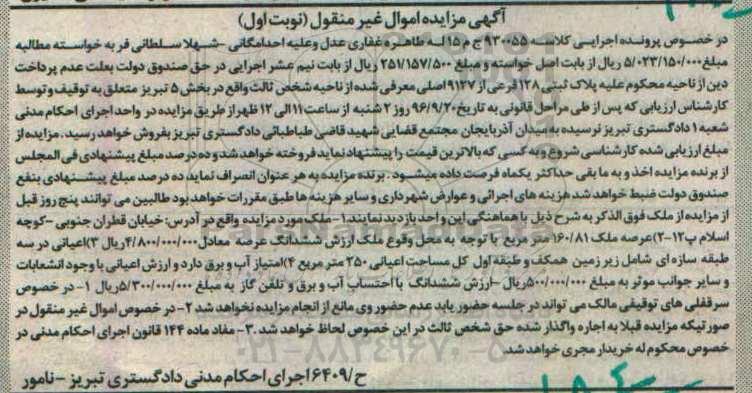 آگهی مزایده اموال غیر منقول (نوبت اول)
در خصوص پرونده اجرایی کلاسه ۹۳۰۰۵۵ ج م ۱۵ له طاهره غفاری عدل وعلیه احدامگانی -شهلا سلطانی فر به خواسته مطالبه
مبلغ ۵/۰۲۳/۱۵۰/۰۰۰ ریال از بابت اصل خواسته و مبلغ ۲۵۱/۱۵۷/۵۰۰ ریال از بابت نیم عشر اجرایی در حق صندوق دولت بعلت عدم پرداخت
دین از ناحیه محکوم علیه پلاک ثبتی ۱۲۸ فرعی از ۹۱۲۷ اصلی معرفی شده از ناحیه شخص ثالث واقع در بخش ۵ تبریز متعلق به توقیف و توسط
کارشناس ارزیابی که پس از طی مراحل قانونی به تاریخ ۹۶/۹/۲۰ روز ۲ شنبه از ساعت ۱۱ الی ۱۲ ظهر از طریق مزایده در واحد اجرای احکام مدنی
شعبه ۱ دادگستری تبریز نرسیده به میدان آذربایجان مجتمع قضایی شهید قاضی طباطبائی دادگستری تبریز بفروش خواهد رسید. مزایده از
مبلغ ارزیابی شده کارشناسی شروع و به کسی که بالاترین قیمت را پیشنهاد نماید فروخته خواهد شد و ده درصد مبلغ پیشنهادی فی المجلس
از برنده مزایده اخذ و به ما بقی حداکثر یکماه فرصت داده میشود. برنده مزایده به هر عنوان انصراف نماید ده درصد مبلغ پیشنهادی بنفع
صندوق دولت ضبط خواهد شد هزینه های اجرائی و عوارض شهرداری و سایر هزینه ها طبق مقررات خواهد بود طالبین می توانند پنج روز قبل
از مزایده از ملک فوق الذکر به شرح ذیل با هماهنگی این واحد بازدید نمایند ۱- ملک مورد مزایده واقع در آدرس: خیابان قطران جنوبی -کوچه
اسلام پ۱۲-۲)عرصه ملک ۱۶۰/۸۱ متر مربع با توجه به محل وقوع ملک ارزش ششدانگ عرصه معادل ۴/۸۰۰/۰۰۰/۰۰۰ ریال ۳)اعیانی در سه
طبقه سازه ای شامل زیر زمین همکف و طبقه اول کل مساحت اعیانی ۲۵۰ متر مربع ۴)امتیاز آب و برق دارد و ارزش اعیانی با وجود انشعابات
و سایر جوانب موثر به مبلغ ۵۰۰/۰۰۰/۰۰۰ریال -ارزش ششدانگ با احتساب آب و برق و تلفن گاز به مبلغ ۵/۳۰۰/۰۰۰/۰۰۰ریال ۱- در خصوص
سرقفلی های توقیفی مالک می تواند در جلسه حضور یابد عدم حضور وی مانع از انجام مزایده نخواهد شد ۲- در خصوص اموال غیر منقول در
صورتیکه مزایده قبلا به اجاره واگذار شده حق شخص ثالث در این خصوص لحاظ خواهد شد. ۳- مفاد ماده ۱۴۴ قانون اجرای احکام مدنی در
خصوص محکوم له خریدار مجری خواهد شد.
ح/۶۴۰۹ اجرای احکام مدنی دادگستری تبریز -نامور
ParsNamadData
۰۲۱-۸۸۳۴۹۶۷۰-۵